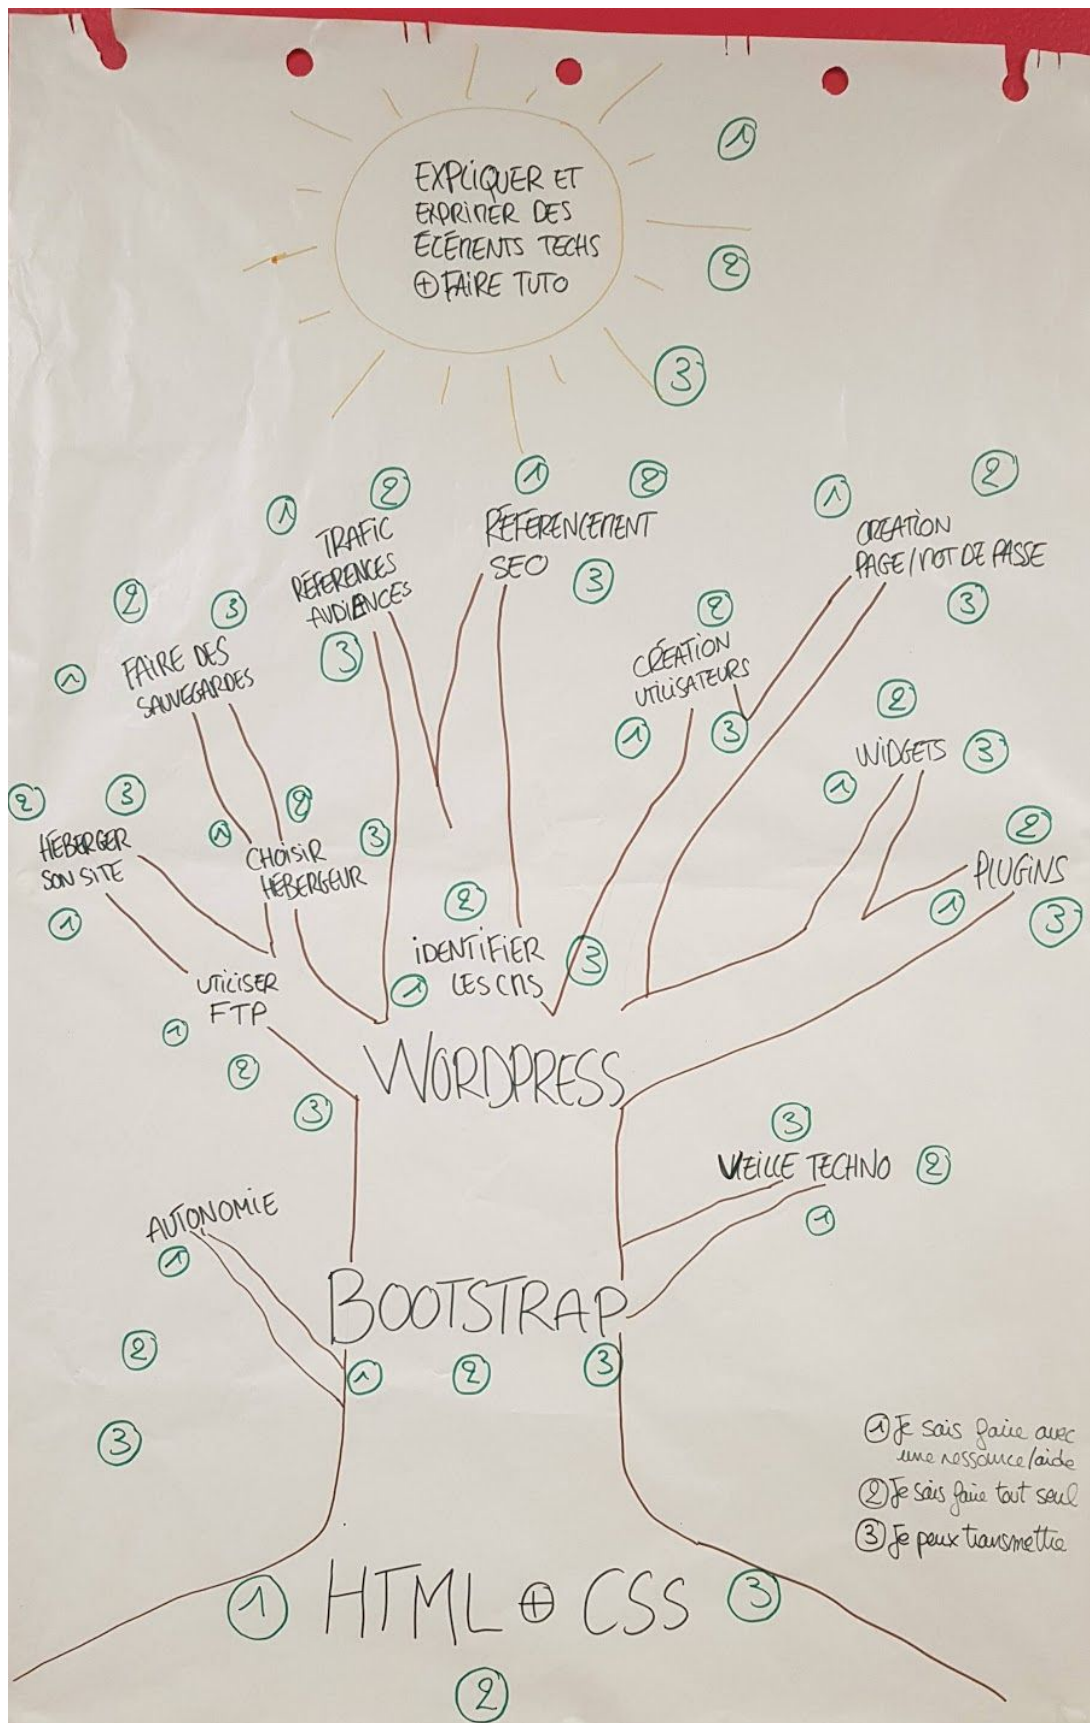 EXPLIQUER ET
EXPRIMER DES
ÉLÉMENTS TECHS
⊕ FAIRE TUTO
①
②
③
① ②
TRAFIC
RÉFÉRENCES
AUDIENCES
③
① ②
RÉFÉRENCEMENT
SEO ③
① ②
CRÉATION
PAGE/MOT DE PASSE
③
② ③
① FAIRE DES
SAUVEGARDES
②
CRÉATION
UTILISATEURS
① ③
②
WIDGETS ③
①
② ③
HÉBERGER
SON SITE
①
① ② ③
CHOISIR
HÉBERGEUR
②
PLUGINS
① ③
②
IDENTIFIER ③
① LES CMS
UTILISER
FTP
①
②
③
WORDPRESS
③
VEILLE TECHNO ②
①
AUTONOMIE
①
②
③
BOOTSTRAP
① ② ③
① Je sais faire avec
une ressource/aide
② Je sais faire tout seul
③ Je peux transmettre
① HTML ⊕ CSS ③
②